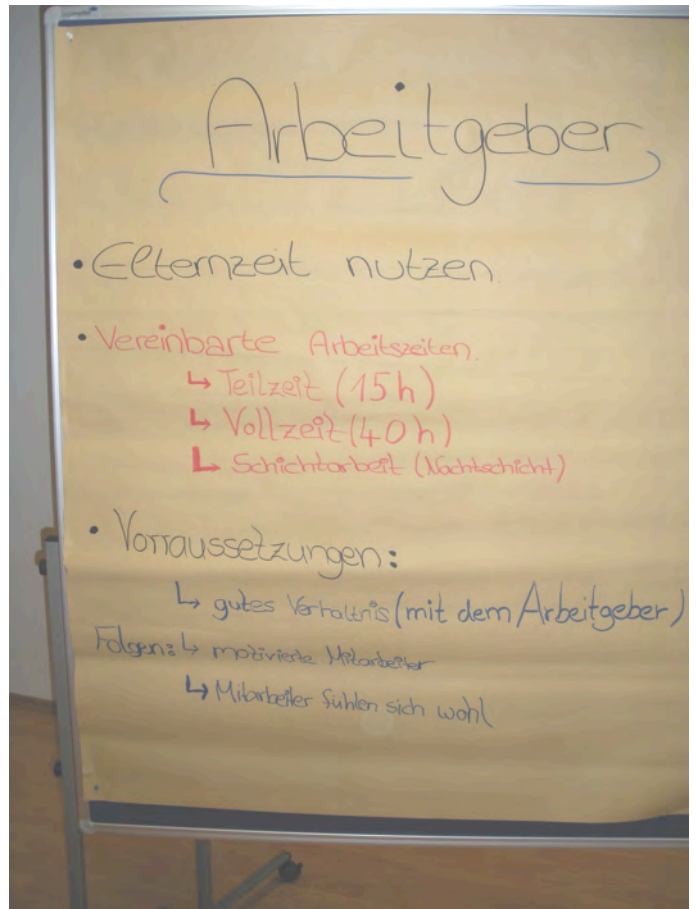 Arbeitgeber
• Elternzeit nutzen.
• Vereinbarte Arbeitszeiten.
↳ Teilzeit (15h)
↳ Vollzeit (40h)
↳ Schichtarbeit (Nachtschicht)
• Vorraussetzungen:
↳ gutes Verhältnis (mit dem Arbeitgeber)
Folgen: ↳ motivierte Mitarbeiter
↳ Mitarbeiter fühlen sich wohl